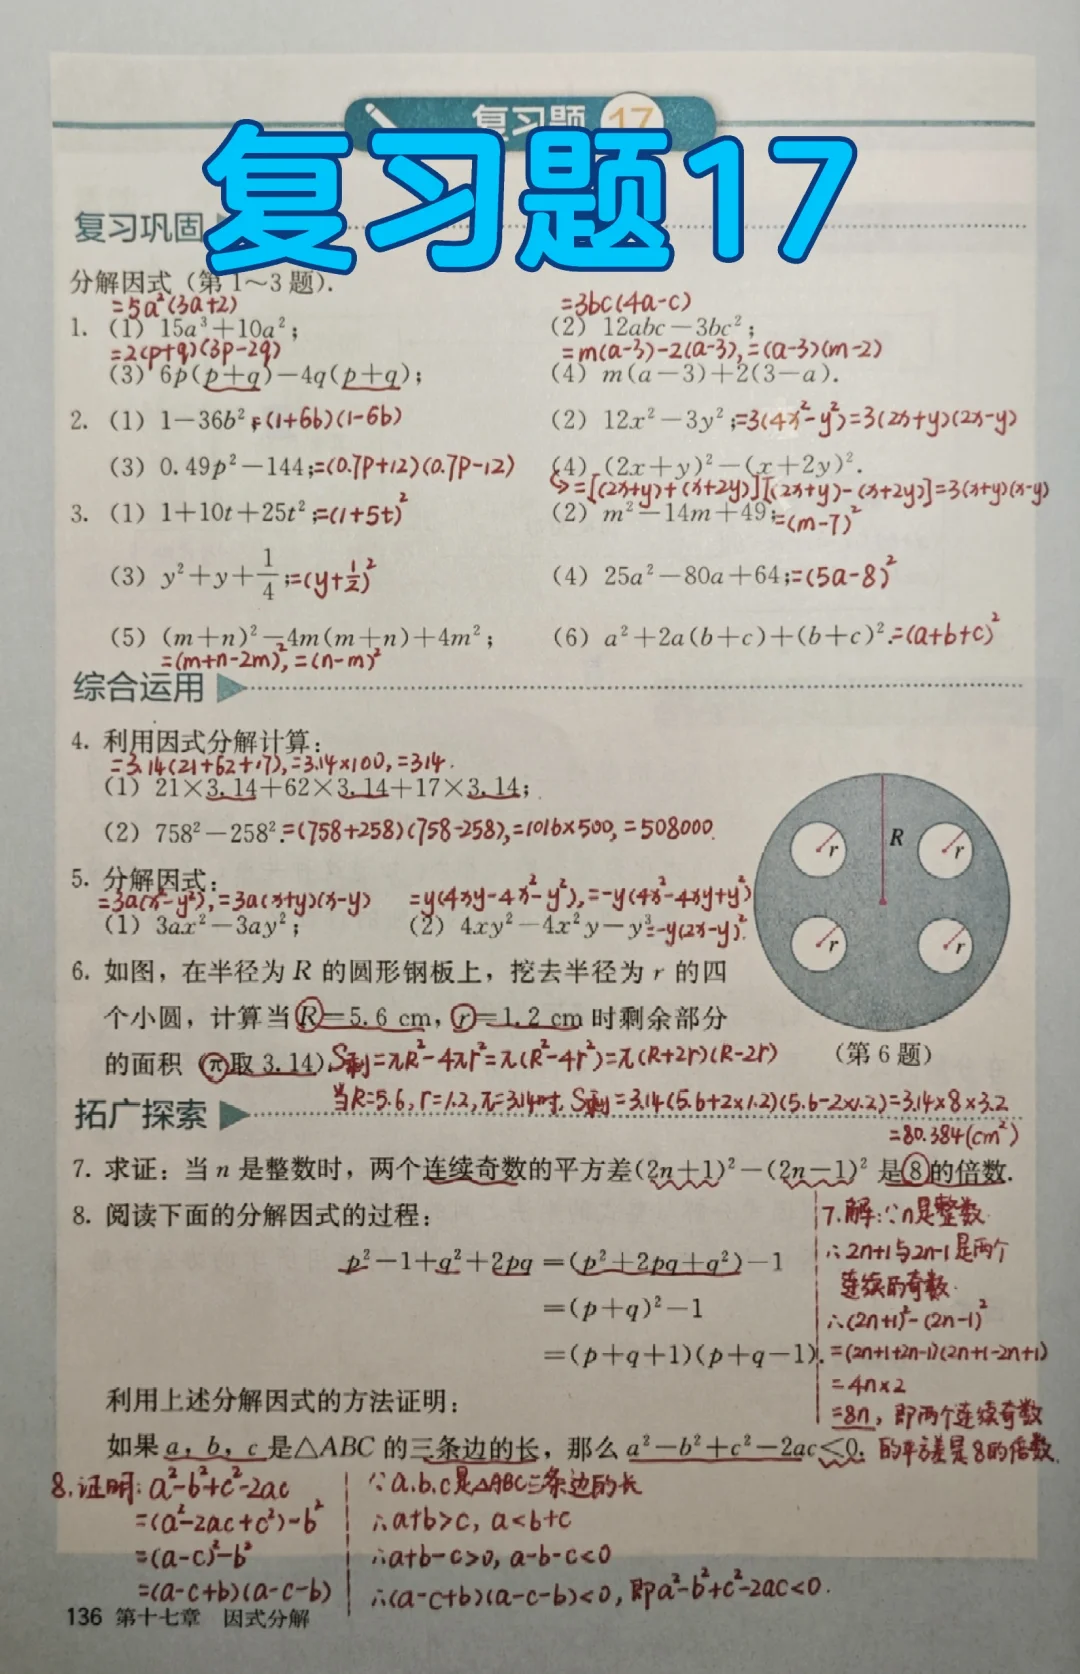 复习题 17
复习题17
复习巩固
分解因式(第1～3题).
=5a²(3a+2)
=3bc(4a-c)
1. (1) 15a³+10a²;
(2) 12abc-3bc²;
=2(p+q)(3p-2q)
=m(a-3)-2(a-3),=(a-3)(m-2)
(3) 6p(p+q)-4q(p+q);
(4) m(a-3)+2(3-a).
2. (1) 1-36b²;=(1+6b)(1-6b)
(2) 12x²-3y²;=3(4x²-y²)=3(2x+y)(2x-y)
(3) 0.49p²-144;=(0.7p+12)(0.7p-12)
(4) (2x+y)²-(x+2y)².
=[(2x+y)+(x+2y)][(2x+y)-(x+2y)]=3(x+y)(x-y)
3. (1) 1+10t+25t²;=(1+5t)²
(2) m²-14m+49;=(m-7)²
(3) y²+y+1/4;=(y+1/2)²
(4) 25a²-80a+64;=(5a-8)²
(5) (m+n)²-4m(m+n)+4m²;
(6) a²+2a(b+c)+(b+c)².=(a+b+c)²
=(m+n-2m)²,=(n-m)²
综合运用
4. 利用因式分解计算:
=3.14(21+62+17),=3.14×100,=314.
(1) 21×3.14+62×3.14+17×3.14;
(2) 758²-258².=(758+258)(758-258),=1016×500,=508000.
5. 分解因式:
=3a(x²-y²),=3a(x+y)(x-y)
=y(4xy-4x²-y²),=-y(4x²-4xy+y²)
(1) 3ax²-3ay²;
(2) 4xy²-4x²y-y³.=-y(2x-y)².
R
r
r
r
r
(第6题)
6. 如图,在半径为R的圆形钢板上,挖去半径为r的四
个小圆,计算当R=5.6 cm,r=1.2 cm时剩余部分
的面积(π取3.14).S剩=πR²-4πr²=π(R²-4r²)=π(R+2r)(R-2r)
当R=5.6,r=1.2,π=3.14时,S剩=3.14(5.6+2×1.2)(5.6-2×1.2)=3.14×8×3.2
=80.384(cm²)
拓广探索
7. 求证:当n是整数时,两个连续奇数的平方差(2n+1)²-(2n-1)²是8的倍数.
7.解:∵n是整数
∴2n+1与2n-1是两个
连续的奇数.
∴(2n+1)²-(2n-1)²
=(2n+1+2n-1)(2n+1-2n+1)
=4n×2
=8n,即两个连续奇数
的平方差是8的倍数.
8. 阅读下面的分解因式的过程:
p²-1+q²+2pq=(p²+2pq+q²)-1
=(p+q)²-1
=(p+q+1)(p+q-1).
利用上述分解因式的方法证明:
如果a,b,c是△ABC的三条边的长,那么a²-b²+c²-2ac<0.
8.证明:a²-b²+c²-2ac
=(a²-2ac+c²)-b²
=(a-c)²-b²
=(a-c+b)(a-c-b)
∵a.b.c是△ABC三条边的长
∴a+b>c, a<b+c
∴a+b-c>0, a-b-c<0
∴(a-c+b)(a-c-b)<0,即a²-b²+c²-2ac<0.
136 第十七章 因式分解